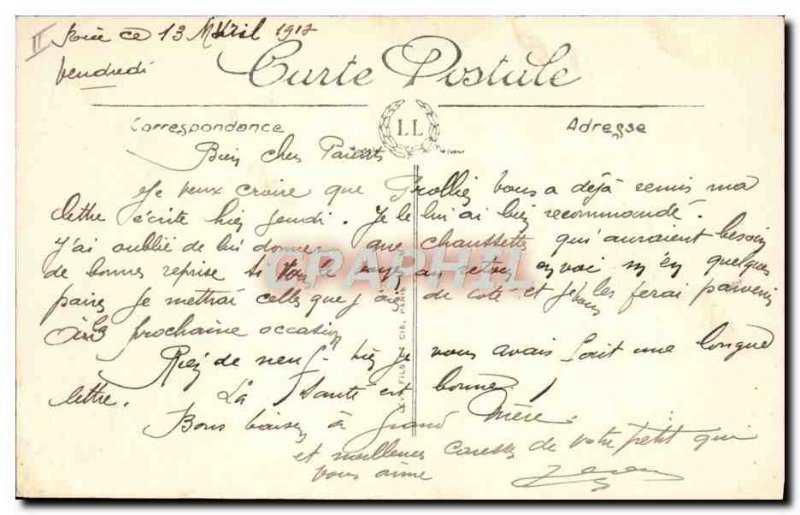 II
ce 13 Avril 1917
Vendredi
Carte Postale
Correspondance
LL
Adresse
Bien chers Parents
Je veux croire que Trolliez vous a déjà remis ma
lettre écrite hier jeudi. Je le lui ai bien recommandé.
J'ai oublié de lui donner que chaussettes qui auraient besoin
de bonnes reprise si en m'en quelques
paires je mettrai celles que j'ai de coté et je vous les ferai parvenir
à la prochaine occasion
Rien de neuf. hier je vous avais fait une longue
lettre. La Santé est bonne.
Bons baisers à grand mère.
et meilleures caresses de votre petit qui
vous aime
LEVY FILS ET CIE, PARIS
CPAPHIL